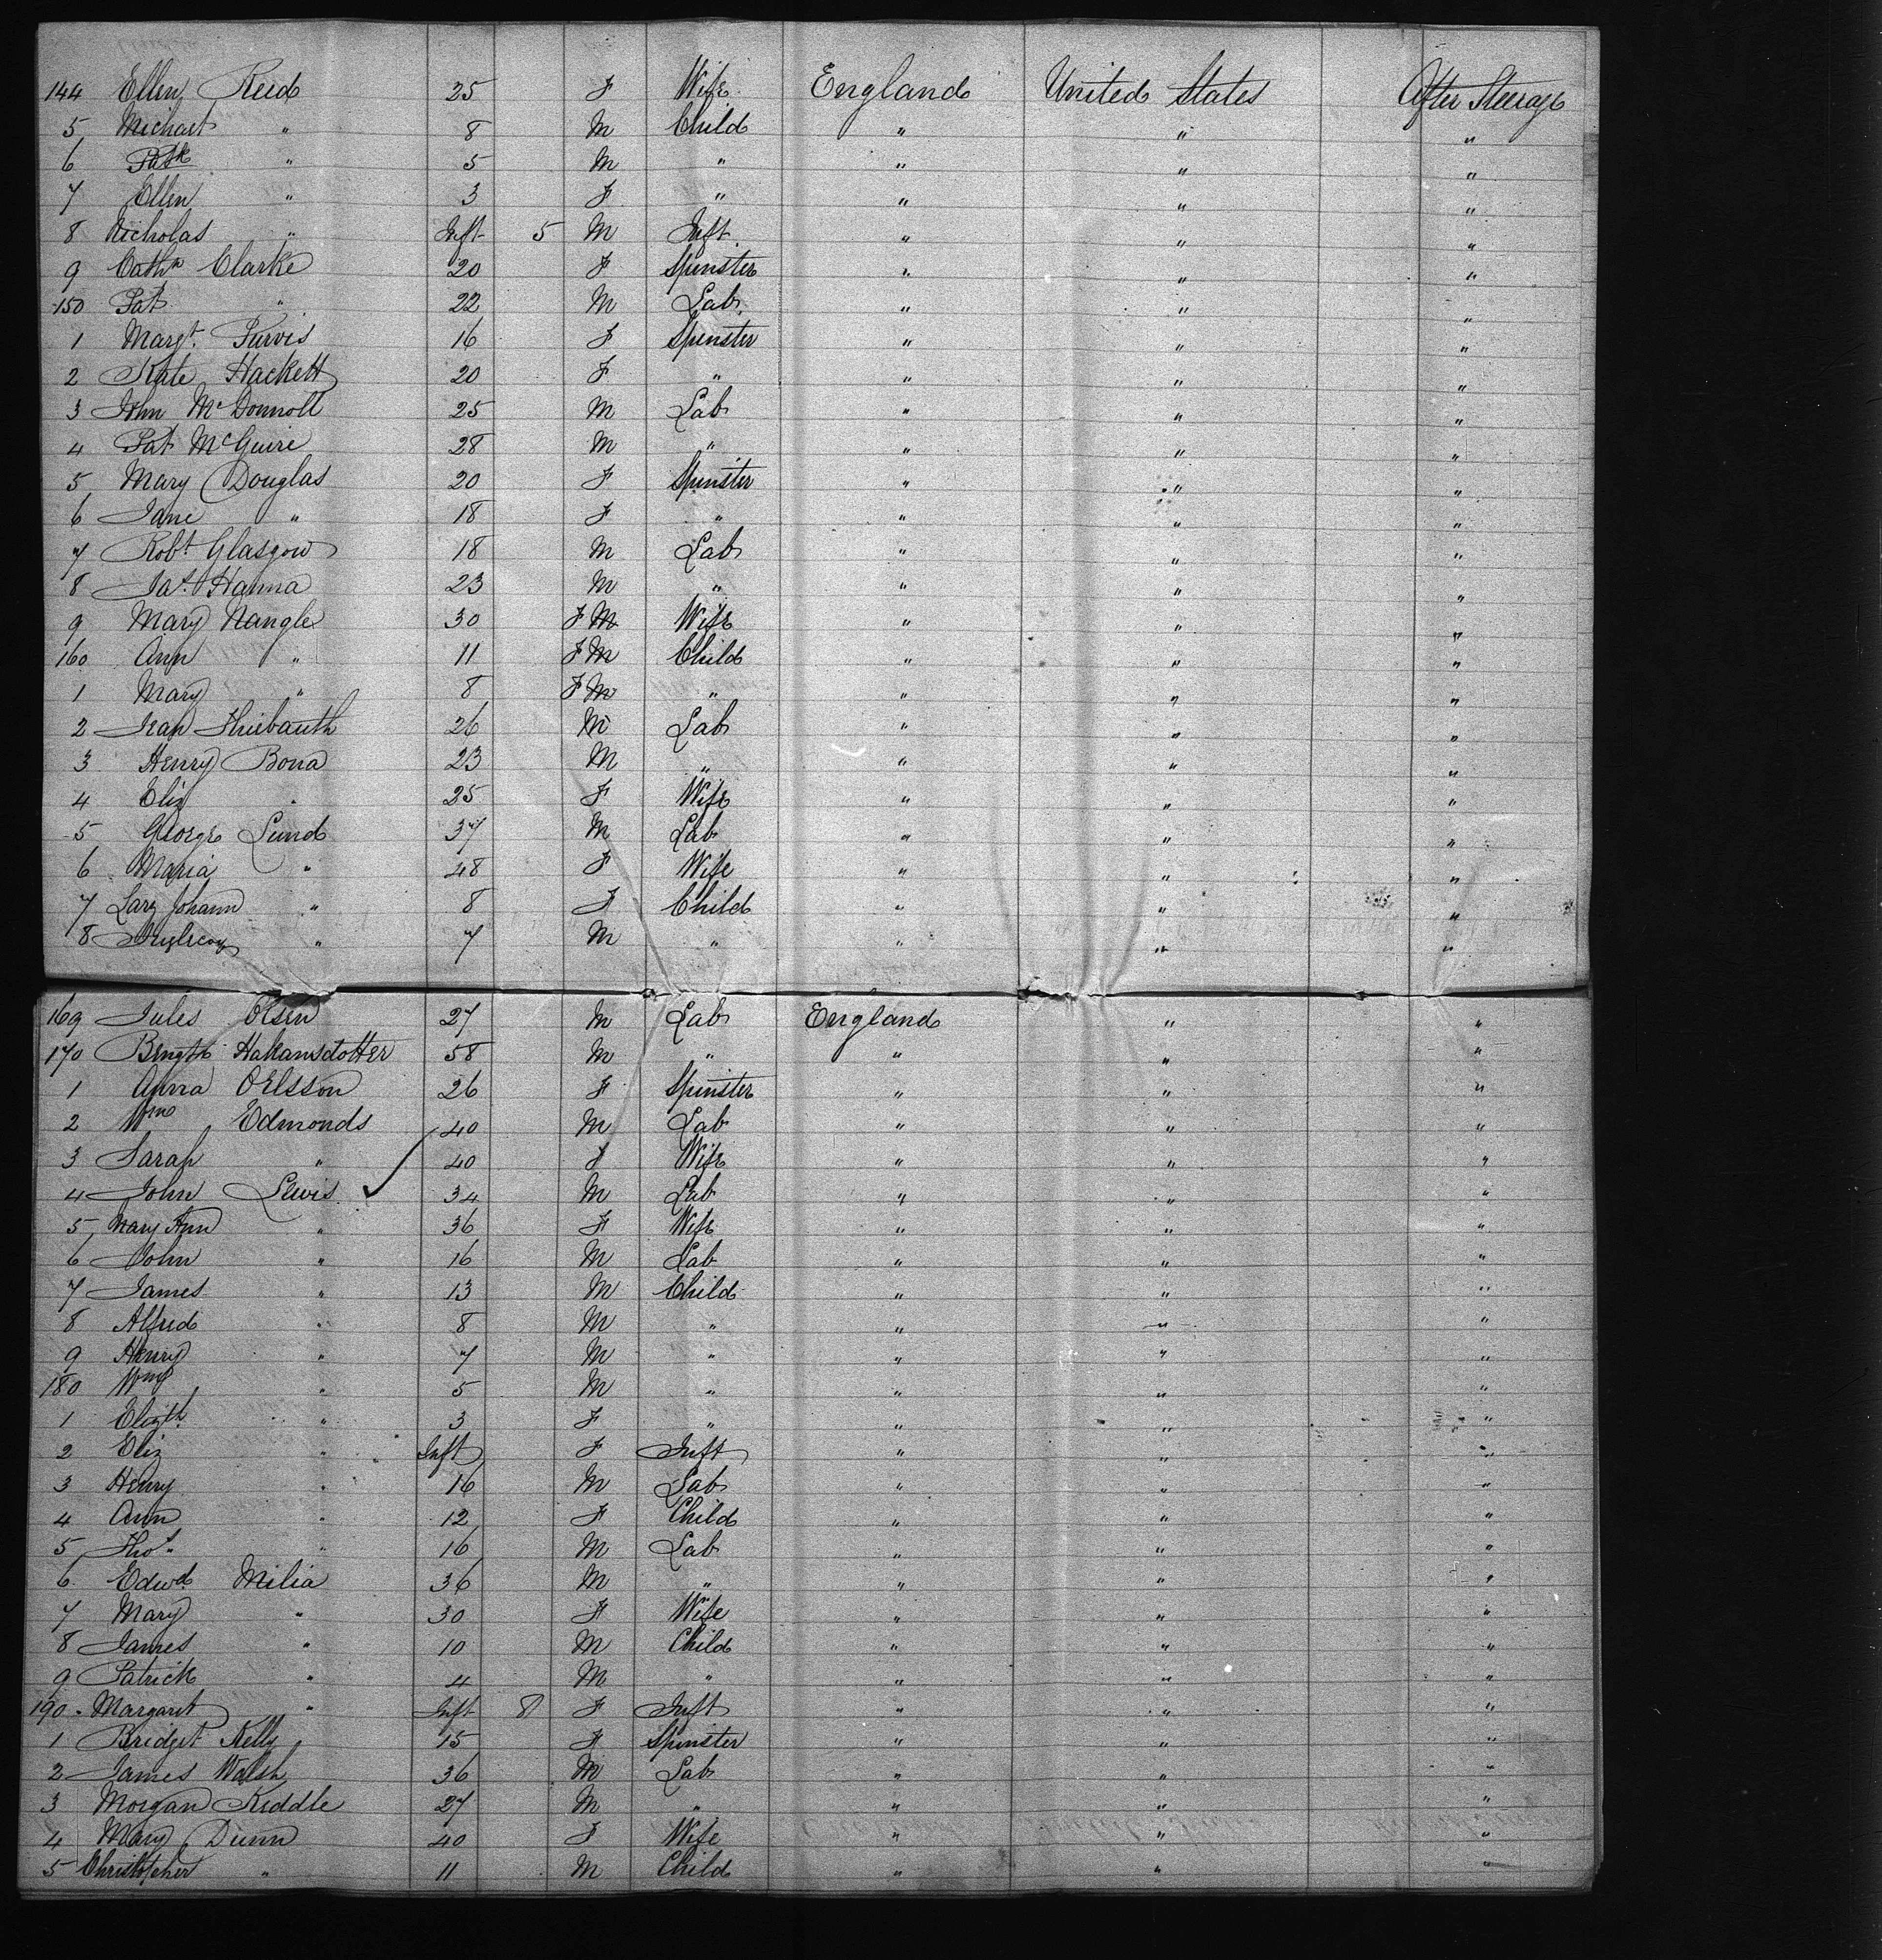 144 Ellen Reid 25 F Wife England United States After Steerage
5 Michael " 8 M Child " " "
6 Patk " 5 M " " " "
7 Ellen " 3 F " " " "
8 Nicholas " Inft 5 M Inft " " "
9 Cathn Clarke 20 F Spinster " " "
150 Pat " 22 M Lab " " "
1 Margt. Purvis 16 F Spinster " " "
2 Kate Hackett 20 F " " " "
3 John McDonnoll 25 M Lab " " "
4 Pat McGuire 28 M " " " "
5 Mary Douglas 20 F Spinster " " "
6 Jane " 18 F " " " "
7 Robt Glasgow 18 M Lab " " "
8 Jas. Hanna 23 M " " " "
9 Mary Nangle 30 F M Wife " " "
160 Ann " 11 F M Child " " "
1 Mary " 8 F M " " " "
2 26 M Lab " " "
3 Henry Bona 23 M " " " "
4 Eliz " 25 F Wife " " "
5 George Lund 37 M Lab " " "
6 Maria " 48 F Wife " " "
7 Johann " 8 F Child " " "
8 " 7 M " " " "
169 Jules Olsen 27 M Lab England " "
170 Bengta Hakansdotter 58 M " " " "
1 Anna Oelsson 26 F Spinster " " "
2 Wm Edmonds 40 M Lab " " "
3 Sarah " 40 F Wife " " "
4 John Lewis 34 M Lab " " "
5 Mary Ann " 36 F Wife " " "
6 John " 16 M Lab " " "
7 James " 13 M Child " " "
8 Alfred " 8 M " " " "
9 Henry " 7 M " " " "
180 Wm " 5 M " " " "
1 Elizth " 3 F " " " "
2 Eliz " Inft F Inft " " "
3 Henry " 16 M Lab " " "
4 Ann " 12 F Child " " "
5 Thos. " 16 M Lab " " "
6 Edwd Milia 36 M " " " "
7 Mary " 30 F Wife " " "
8 James " 10 M Child " " "
9 Patrick " 4 M " " " "
190 Margaret " Inft 8 F Inft " " "
1 Bridget Kelly 15 F Spinster " " "
2 James Walsh 36 M Lab " " "
3 Morgan Kiddle 27 M " " " "
4 Mary Dunn 40 F Wife " " "
5 Christopher " 11 M Child " " "